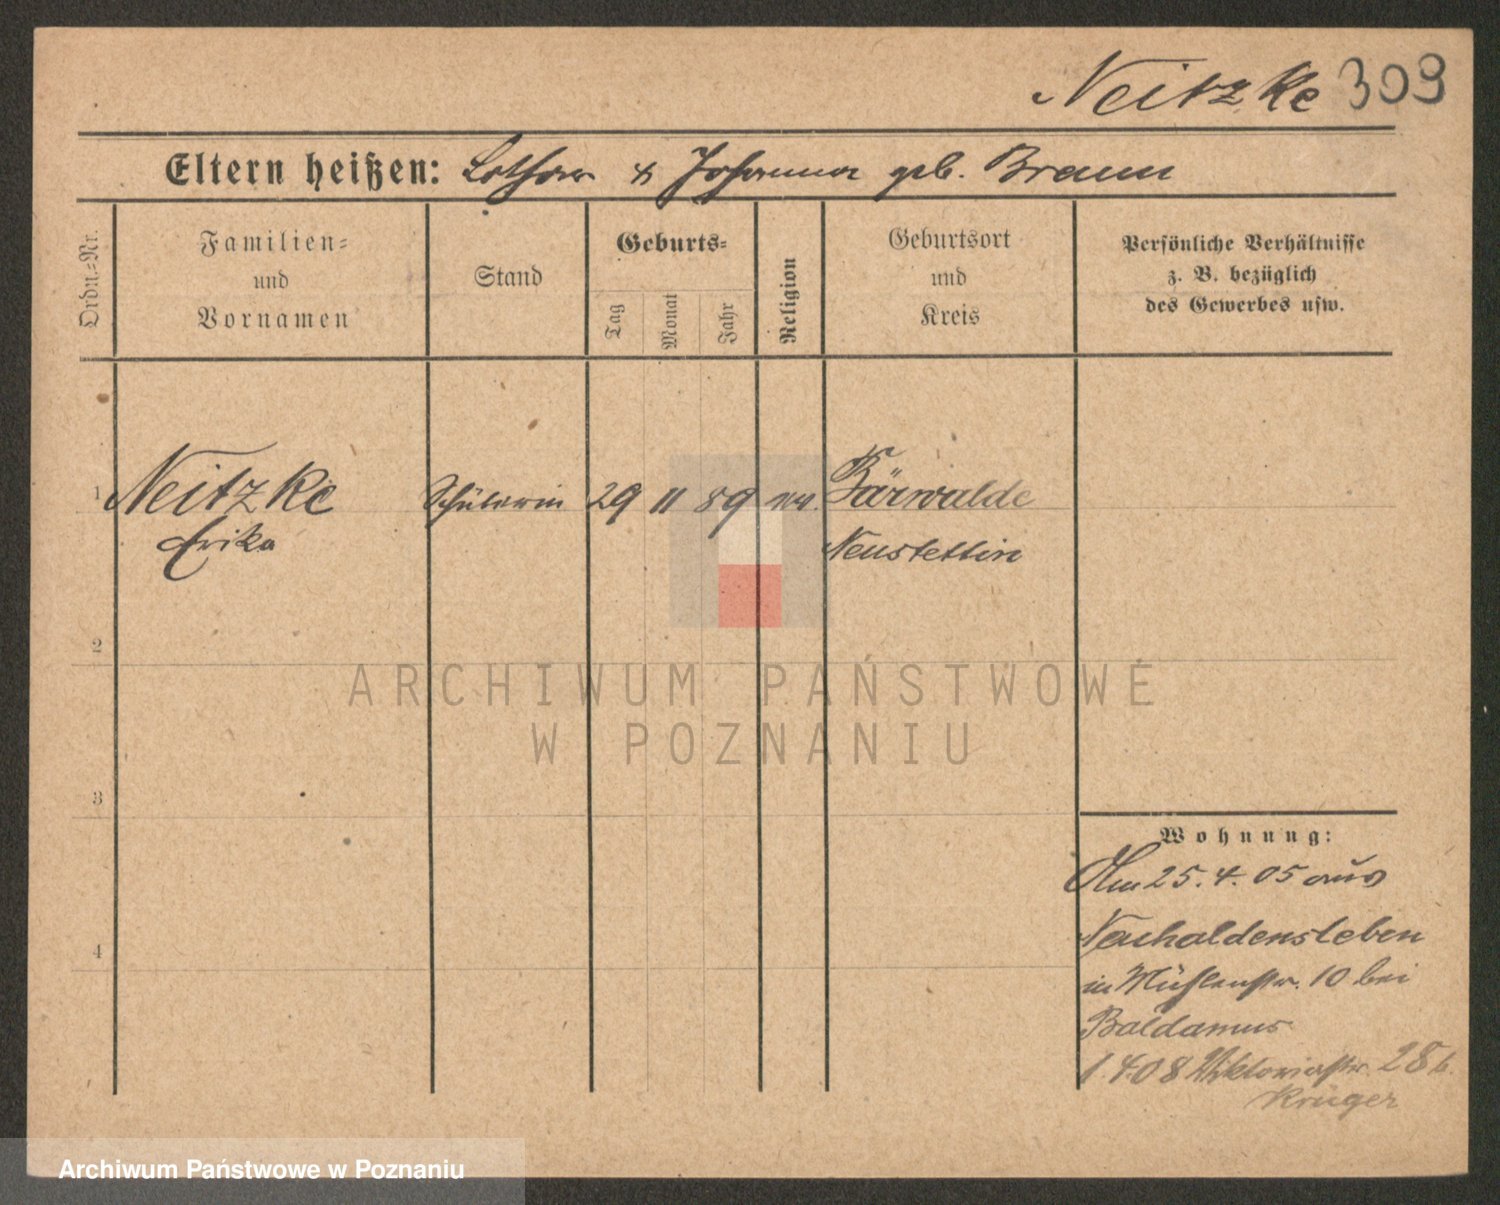 Neitzke 309
Eltern heißen: Lothar & Johanna geb. Braun
Ordn.=Nr.
Familien=
und
Vornamen
Stand
Geburts=
Tag
Monat
Jahr
Religion
Geburtsort
und
Kreis
Persönliche Verhältnisse
z. B. bezüglich
des Gewerbes usw.
1 Neitzke Schülerin 29 11 89 ev. Bärwalde
Erika Neustettin
2
ARCHIWUM PAŃSTWOWE
W POZNANIU
3
Wohnung:
Am 25.4.05 aus
Neuhaldensleben
4
in Mühlenstr. 10 bei
Baldamus
1.4.08 Viktoriastr. 28 b.
Krüger
Archiwum Państwowe w Poznaniu